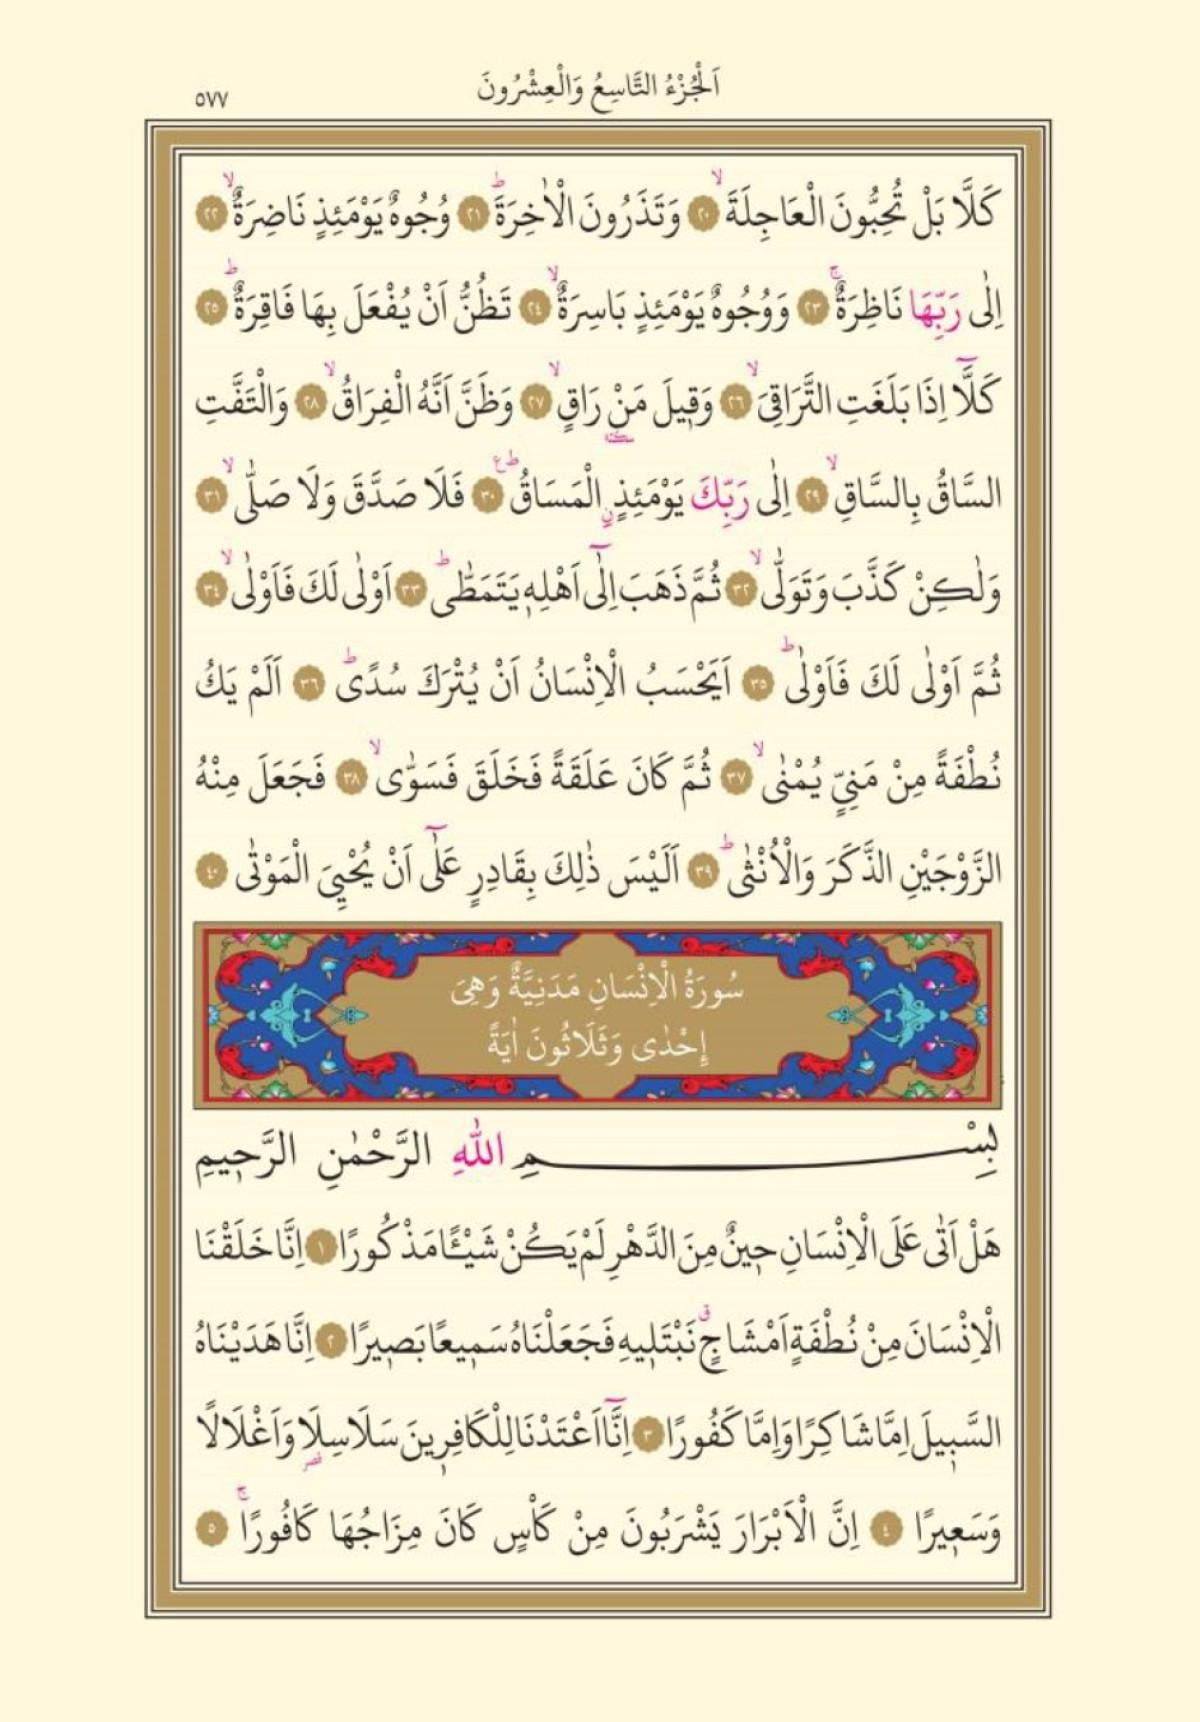 اَلْجُزْءُ التَّاسِعُ وَالْعِشْرُونَ
٥٧٧
كَلَّا بَلْ تُحِبُّونَ الْعَاجِلَةَۙ ﴿٢٠﴾ وَتَذَرُونَ الْاٰخِرَةَۜ ﴿٢١﴾ وُجُوهٌ يَوْمَئِذٍ نَاضِرَةٌۙ ﴿٢٢﴾
اِلٰى رَبِّهَا نَاظِرَةٌۚ ﴿٢٣﴾ وَوُجُوهٌ يَوْمَئِذٍ بَاسِرَةٌۙ ﴿٢٤﴾ تَظُنُّ اَنْ يُفْعَلَ بِهَا فَاقِرَةٌۜ ﴿٢٥﴾
كَلَّٓا اِذَا بَلَغَتِ التَّرَاقِيَۙ ﴿٢٦﴾ وَق۪يلَ مَنْ رَاقٍۙ ﴿٢٧﴾ وَظَنَّ اَنَّهُ الْفِرَاقُۙ ﴿٢٨﴾ وَالْتَفَّتِ
السَّاقُ بِالسَّاقِۙ ﴿٢٩﴾ اِلٰى رَبِّكَ يَوْمَئِذٍ الْمَسَاقُۜ ع ﴿٣٠﴾ فَلَا صَدَّقَ وَلَا صَلّٰىۙ ﴿٣١﴾
وَلٰكِنْ كَذَّبَ وَتَوَلّٰىۙ ﴿٣٢﴾ ثُمَّ ذَهَبَ اِلٰٓى اَهْلِه۪ يَتَمَطّٰىۜ ﴿٣٣﴾ اَوْلٰى لَكَ فَاَوْلٰىۙ ﴿٣٤﴾
ثُمَّ اَوْلٰى لَكَ فَاَوْلٰىۜ ﴿٣٥﴾ اَيَحْسَبُ الْاِنْسَانُ اَنْ يُتْرَكَ سُدًىۜ ﴿٣٦﴾ اَلَمْ يَكُ
نُطْفَةً مِنْ مَنِيٍّ يُمْنٰىۙ ﴿٣٧﴾ ثُمَّ كَانَ عَلَقَةً فَخَلَقَ فَسَوّٰىۙ ﴿٣٨﴾ فَجَعَلَ مِنْهُ
الزَّوْجَيْنِ الذَّكَرَ وَالْاُنْثٰىۜ ﴿٣٩﴾ اَلَيْسَ ذٰلِكَ بِقَادِرٍ عَلٰٓى اَنْ يُحْيِيَ الْمَوْتٰى ﴿٤٠﴾
سُورَةُ الْاِنْسَانِ مَدَنِيَّةٌ وَهِيَ
إِحْدٰى وَثَلَاثُونَ اٰيَةً
بِسْمِ اللّٰهِ الرَّحْمٰنِ الرَّح۪يمِ
هَلْ اَتٰى عَلَى الْاِنْسَانِ ح۪ينٌ مِنَ الدَّهْرِ لَمْ يَكُنْ شَيْـًٔا مَذْكُورًا ﴿١﴾ اِنَّا خَلَقْنَا
الْاِنْسَانَ مِنْ نُطْفَةٍ اَمْشَاجٍۗ نَبْتَل۪يهِ فَجَعَلْنَاهُ سَم۪يعًا بَص۪يرًا ﴿٢﴾ اِنَّا هَدَيْنَاهُ
السَّب۪يلَ اِمَّا شَاكِرًا وَاِمَّا كَفُورًا ﴿٣﴾ اِنَّٓا اَعْتَدْنَا لِلْكَافِر۪ينَ سَلَاسِلَا۬ وَاَغْلَالًا
وَسَع۪يرًا ﴿٤﴾ اِنَّ الْاَبْرَارَ يَشْرَبُونَ مِنْ كَأْسٍ كَانَ مِزَاجُهَا كَافُورًاۚ ﴿٥﴾